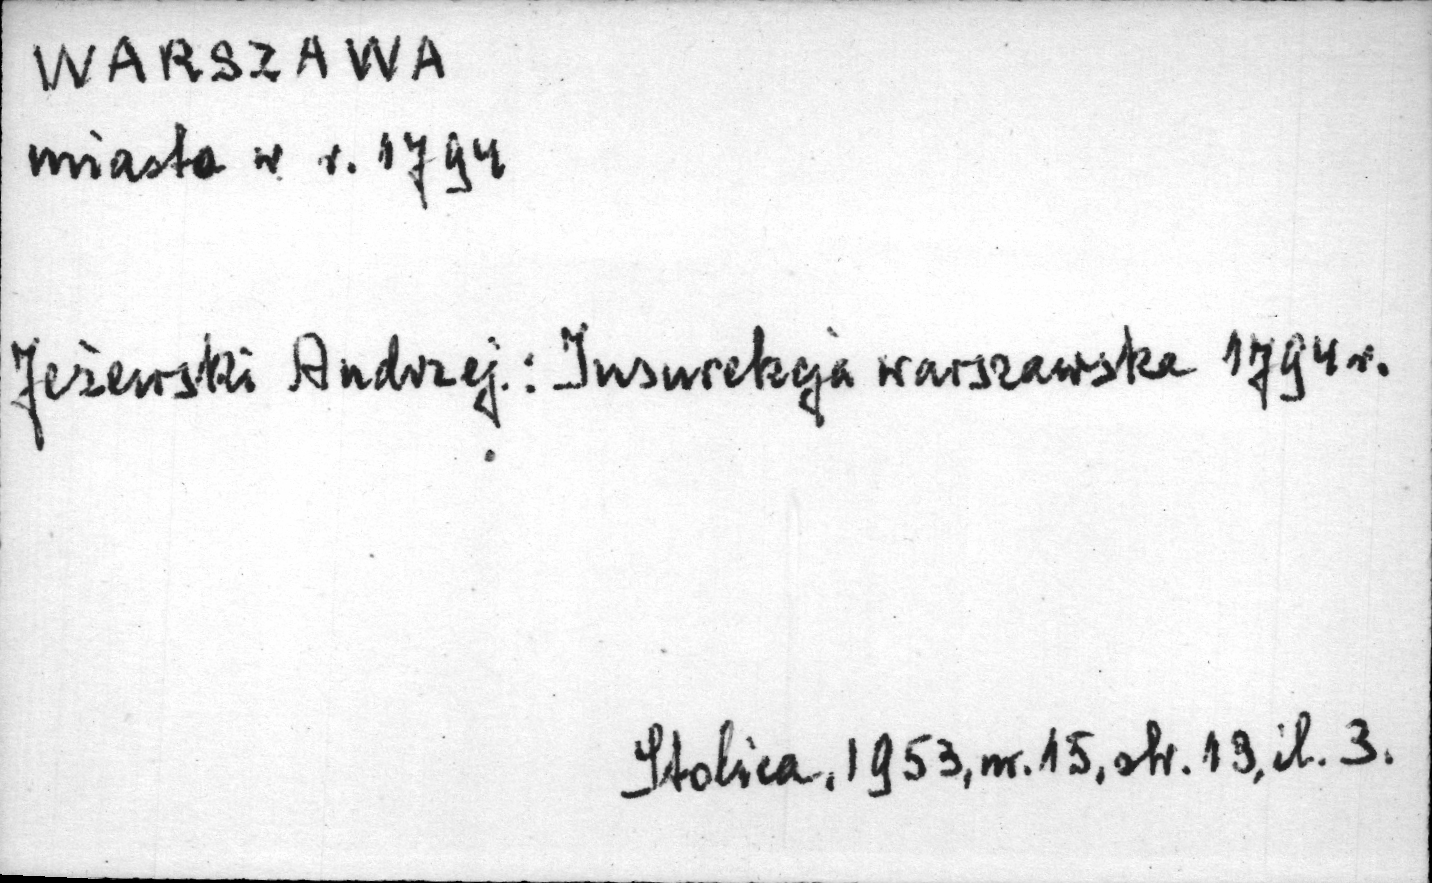 WARSZAWA
miasto w r. 1794
Jeżewski Andrzej.: Insurekcja warszawska 1794 r.
Stolica, 1953, nr. 15, str. 13, il. 3.